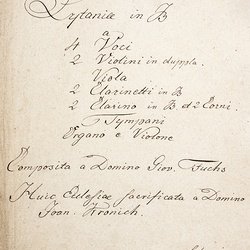 Lytaniæ in B
a
4 Voci
2 Violini in duppla
Viola
2 Clarinetti in B
2 Clarino in B. et 2 Corni
Tympani
Organo e Violone
Composita a Domino Giov. Fuchs
Huic Eclesiæ sacrificata a Domino
Joan. Kronich